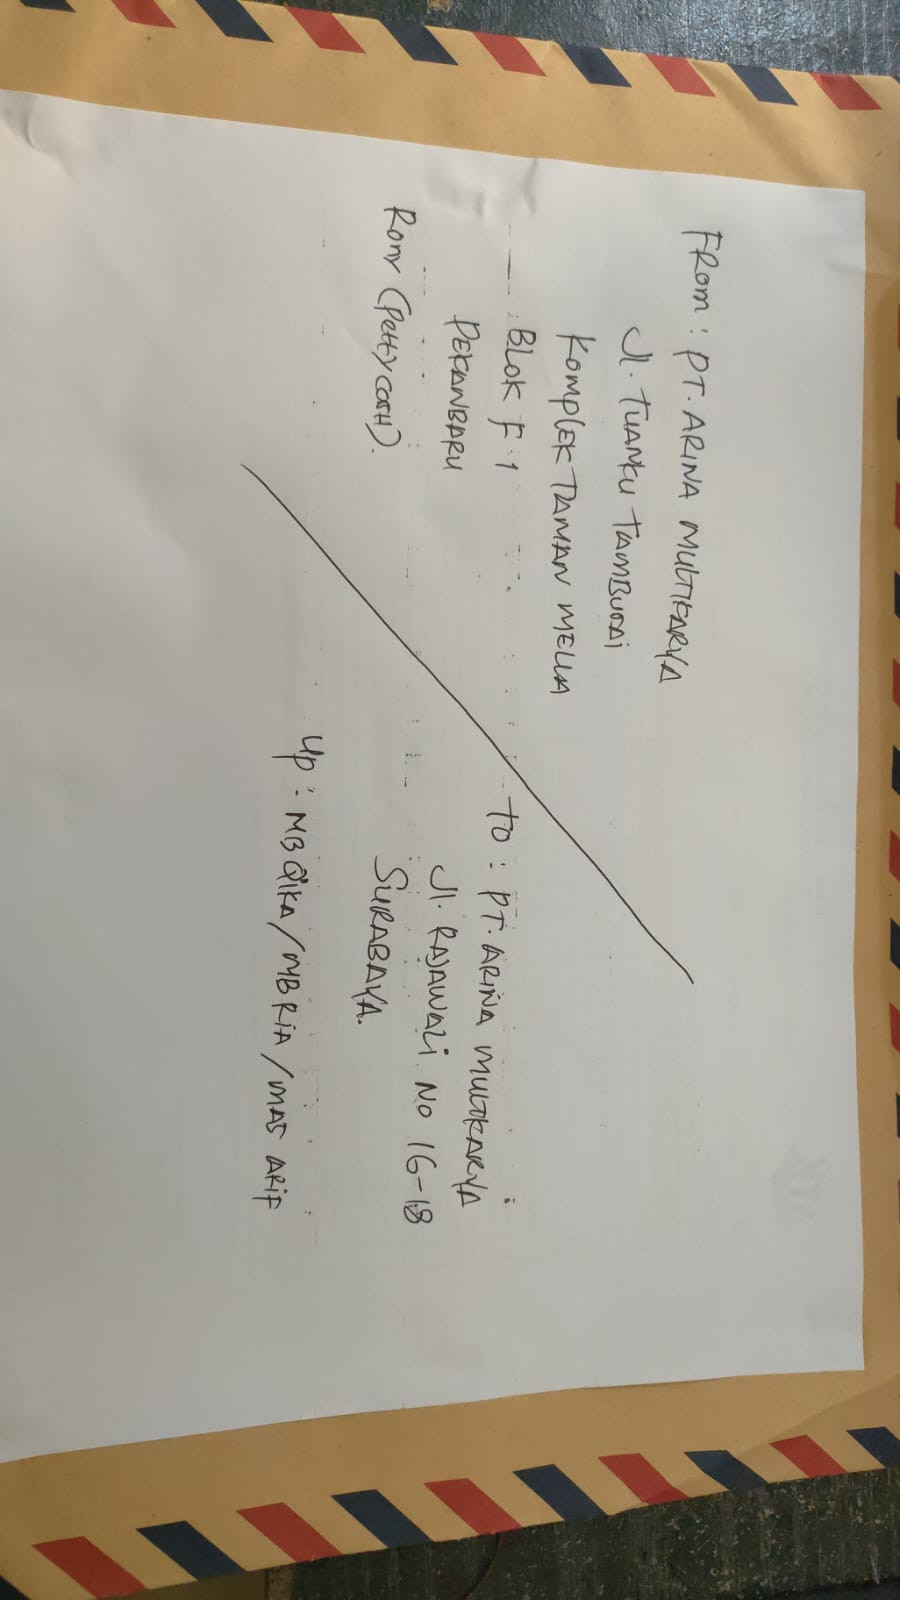 FROM : PT. ARINA MULTIKARYA
Jl. TUANKU TAMBUSAI
KOMPLEK TAMAN MELIA
BLOK F.1
PEKANBARU
RONY (PETTY CASH).
TO : PT. ARINA MULTIKARYA
Jl. RAJAWALI NO 16-18
SURABAYA.
Up : MB QIKA / MB RIA / MAS ARIF